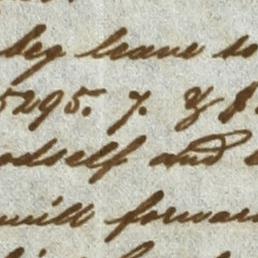 beg leave to
5295. 7. &
odself and
will forward